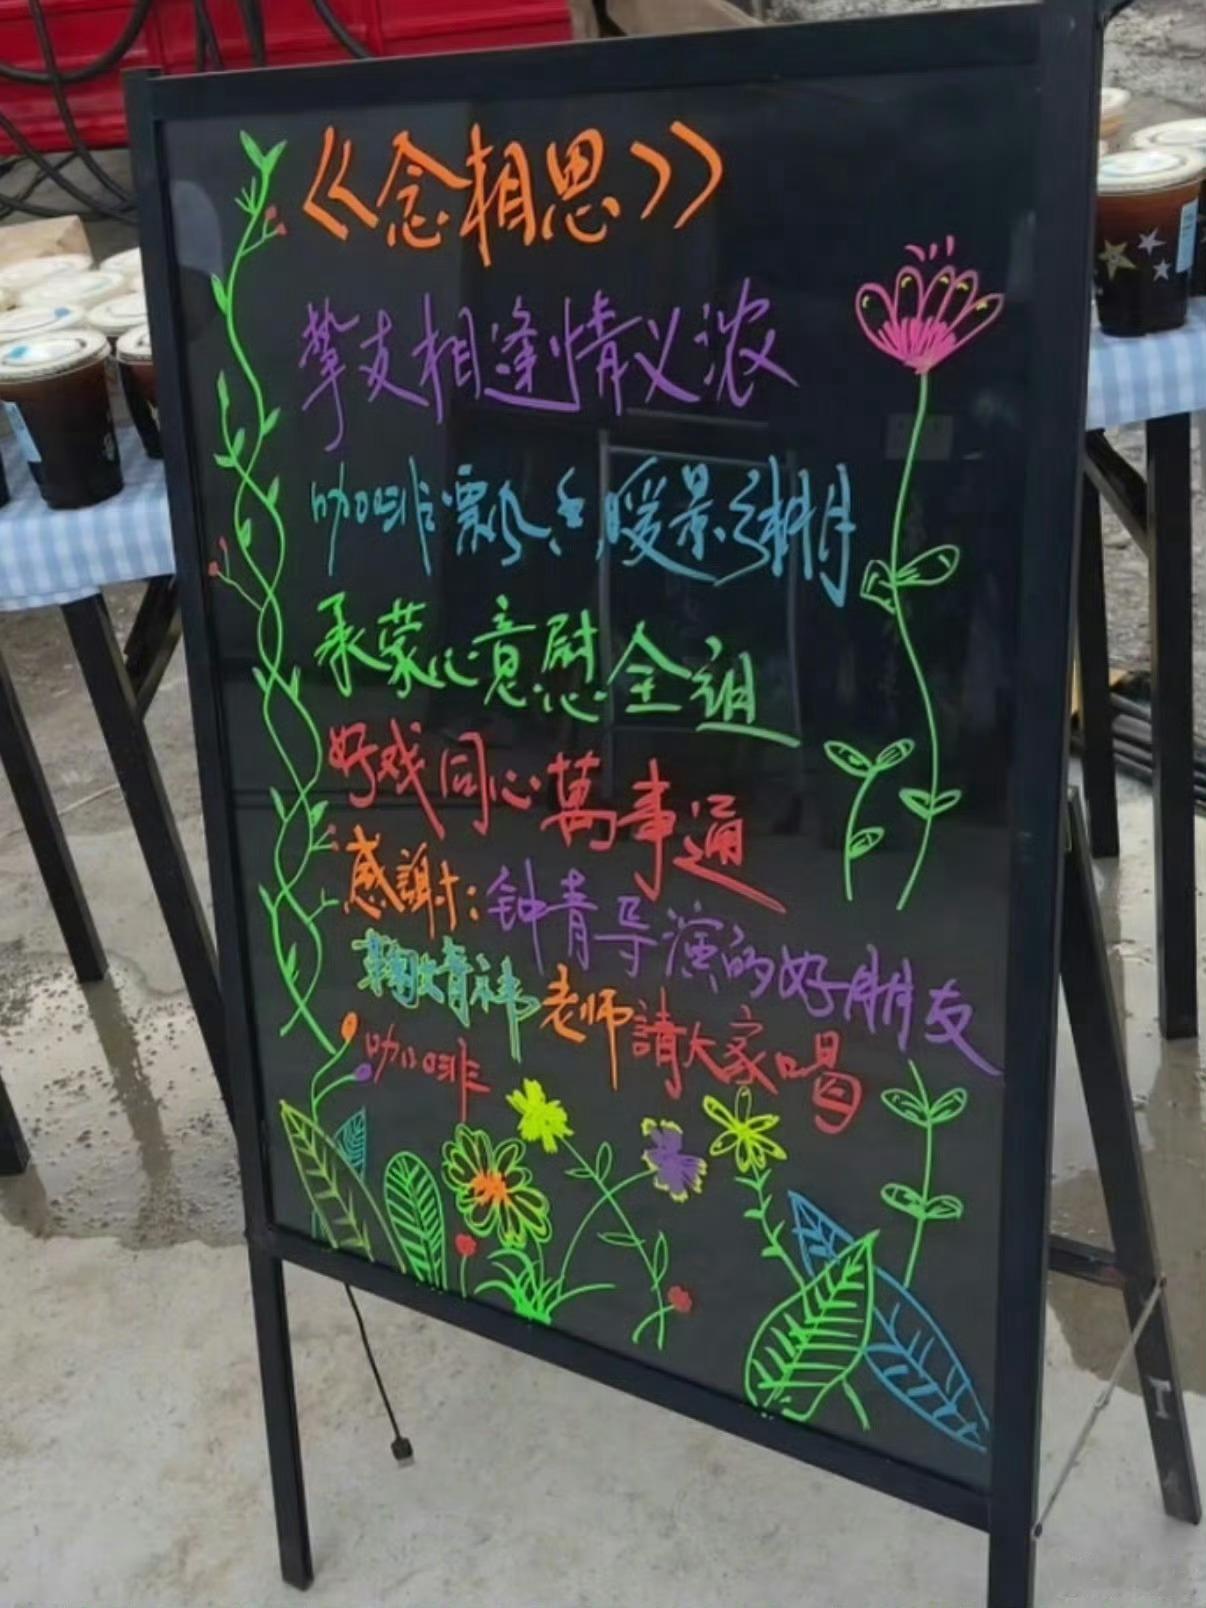 《念相思》
挚友相逢情义浓
咖啡飘香暖景棚
承蒙心意慰全组
好戏同心萬事通
感謝：钟青导演的好朋友
鞠婧祎老师請大家喝
咖啡